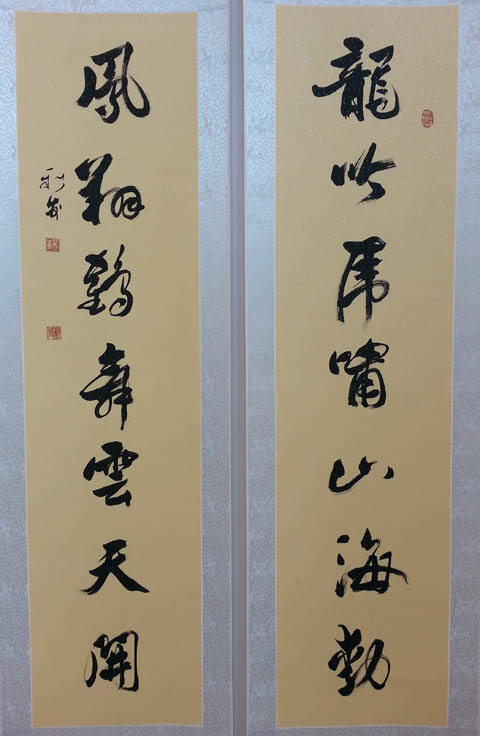 龍吟虎嘯山海動
鳳翔鶴舞雲天開